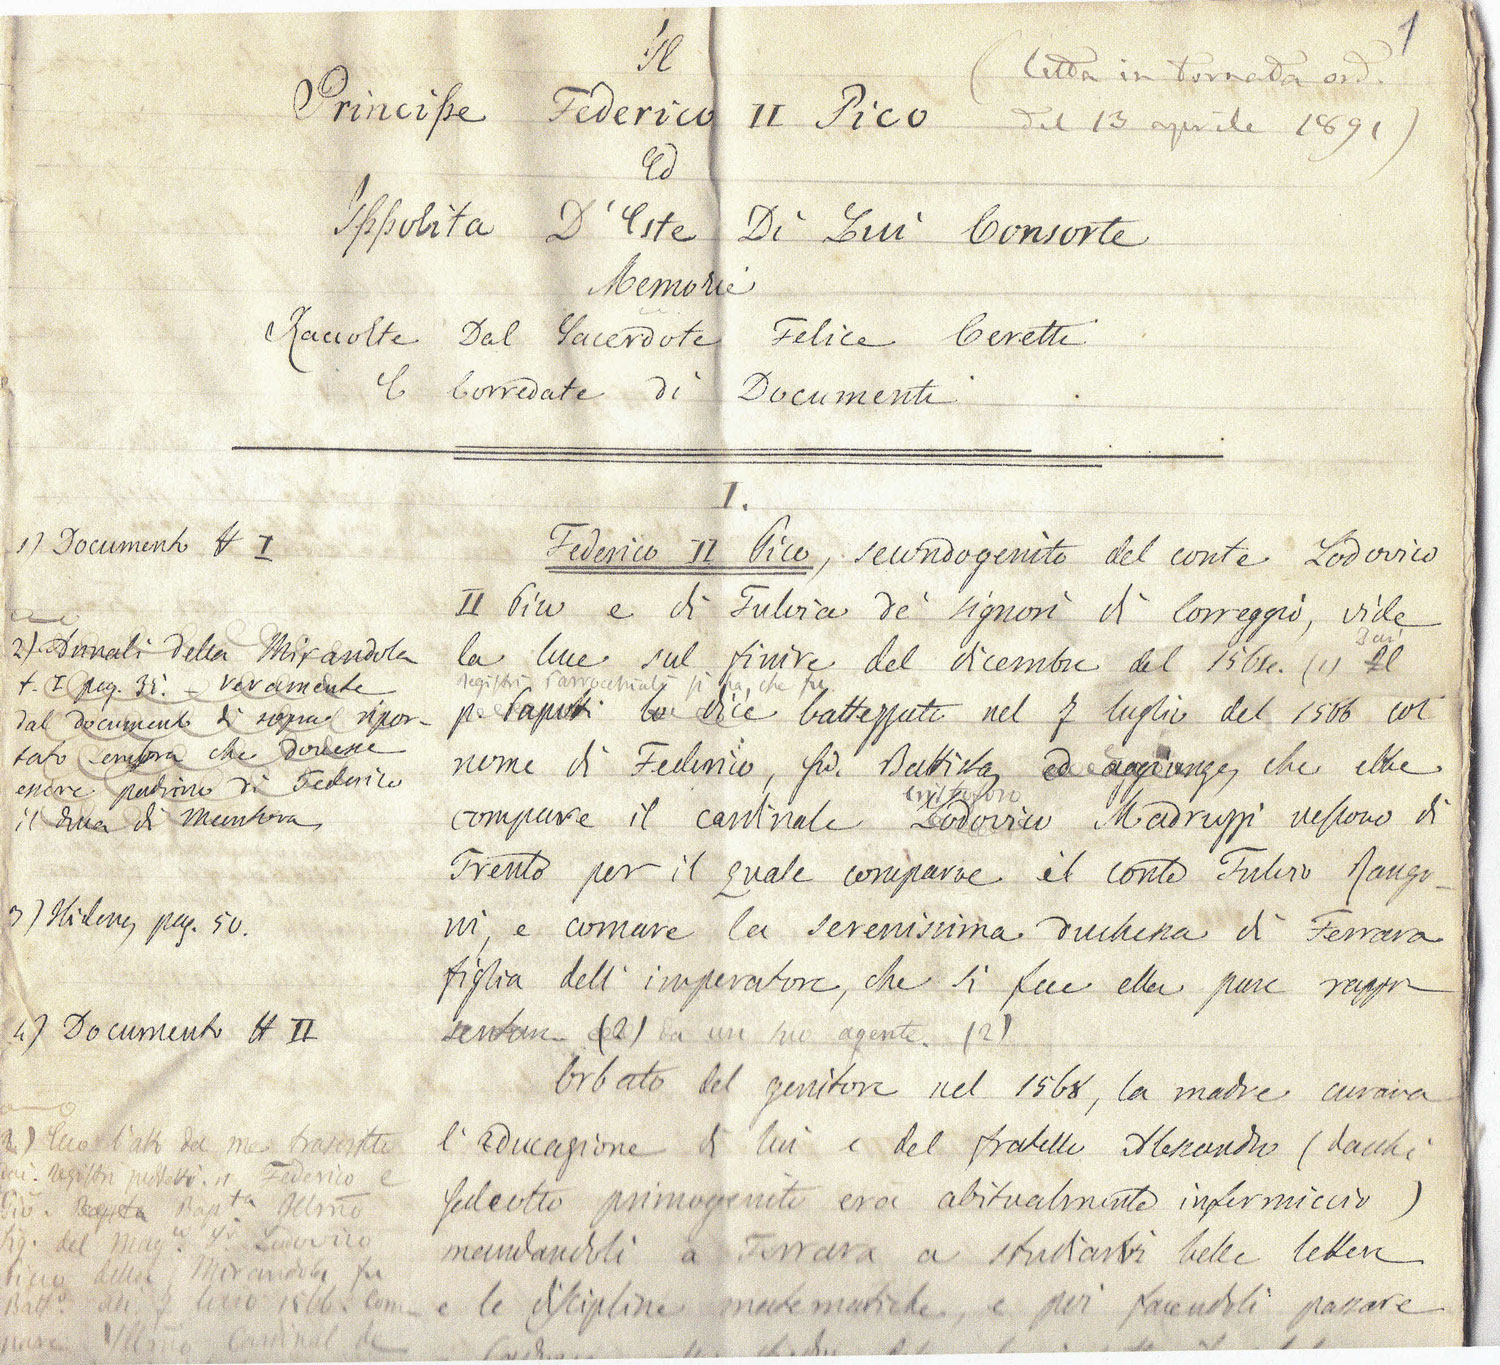 1
Il
Principe Federico II Pico
(Letta in tornata ord.
del 13 aprile 1891)
Ed
Ippolita D'Este Di Lui Consorte
Memorie
Raccolte Dal Sacerdote Felice Ceretti
E Corredate di Documenti
I.
Federico II Pico, secondogenito del conte Lodovico
II Pico e di Fulvia de' signori di Correggio, vide
la luce sul finire del dicembre del (1) Il
Dai
registri Parrocchiali si ha, che fu
lo dice battezzato nel 7 luglio del 1566 col
nome di Federico, Gio. Battista, ed aggiunge, che ebbe
compare il cardinale Lodovico Madruzzi vescovo di
Cristoforo
Trento per il quale comparve il conte Fulvio Rango-
ni, e comare la serenissima duchessa di Ferrara
figlia dell'imperatore, che si fece ella pure rappre
sentare (2) da un suo agente. (2)
Orbato del genitore nel 1568, la madre curava
l'educazione di lui e del fratello Alessandro (dacchè
Galeotto primogenito era abitualmente infermiccio)
mandandoli a Ferrara a studiarvi belle lettere
e le discipline matematiche, e poi facendoli passare
1) Documento N I
2) Annali della Mirandola
t. I pag. 35. - veramente
dal documento di sopra ripor-
tato sembra che dovesse
essere padrino di Federico
il duca di Mantova
3) Hidem, pag. 50.
4) Documento N II
2) Ecco l'atto da me trascritto
nei registri Federico e
Gio. Bapta Illmo
Sig. del Magco Sr. Lodovico
Pico della Mirandola fu
Batto adi 7 luio 1566. Com-
pare Illmo Cardinal de